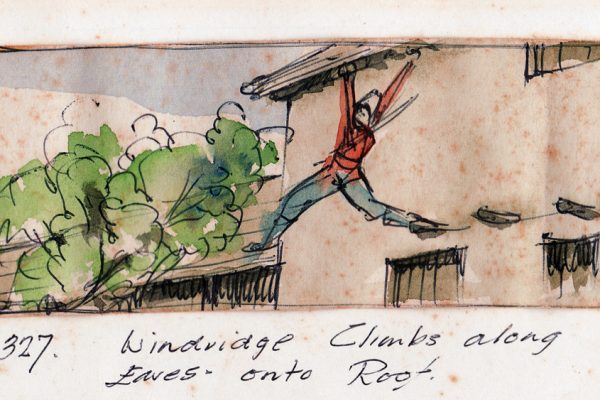 327. Windridge Climbs along
Eaves- onto Roof.